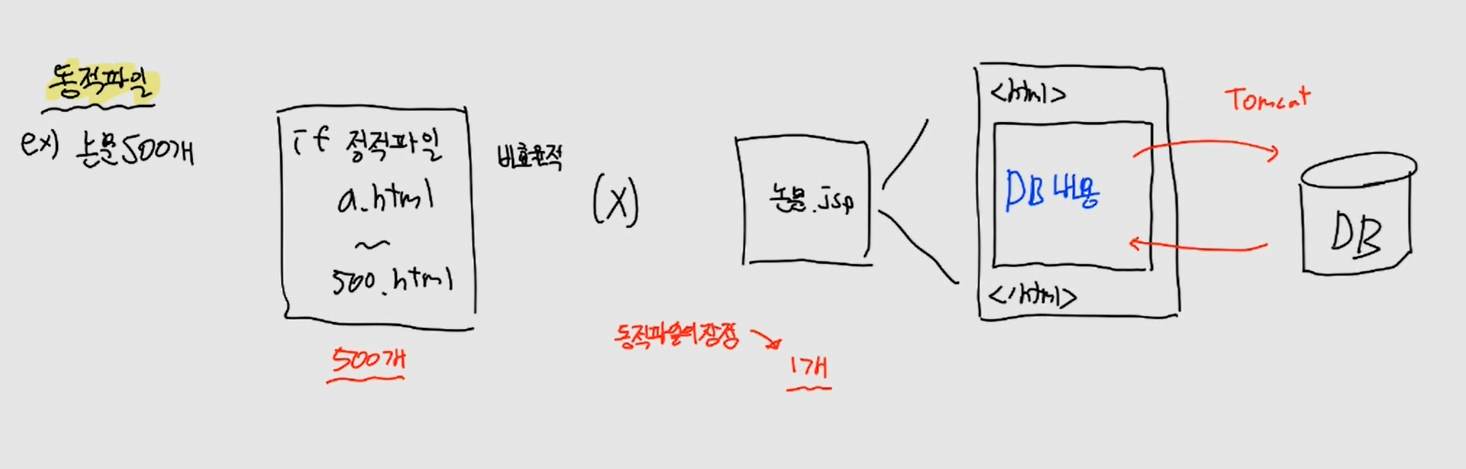 동적파일
ex) 논문 500개
if 정적파일
a.html
~
500.html
500개
비효율적
(X)
논문.jsp
동적파일의 장점
1개
<html>
DB 내용
</html>
Tomcat
DB